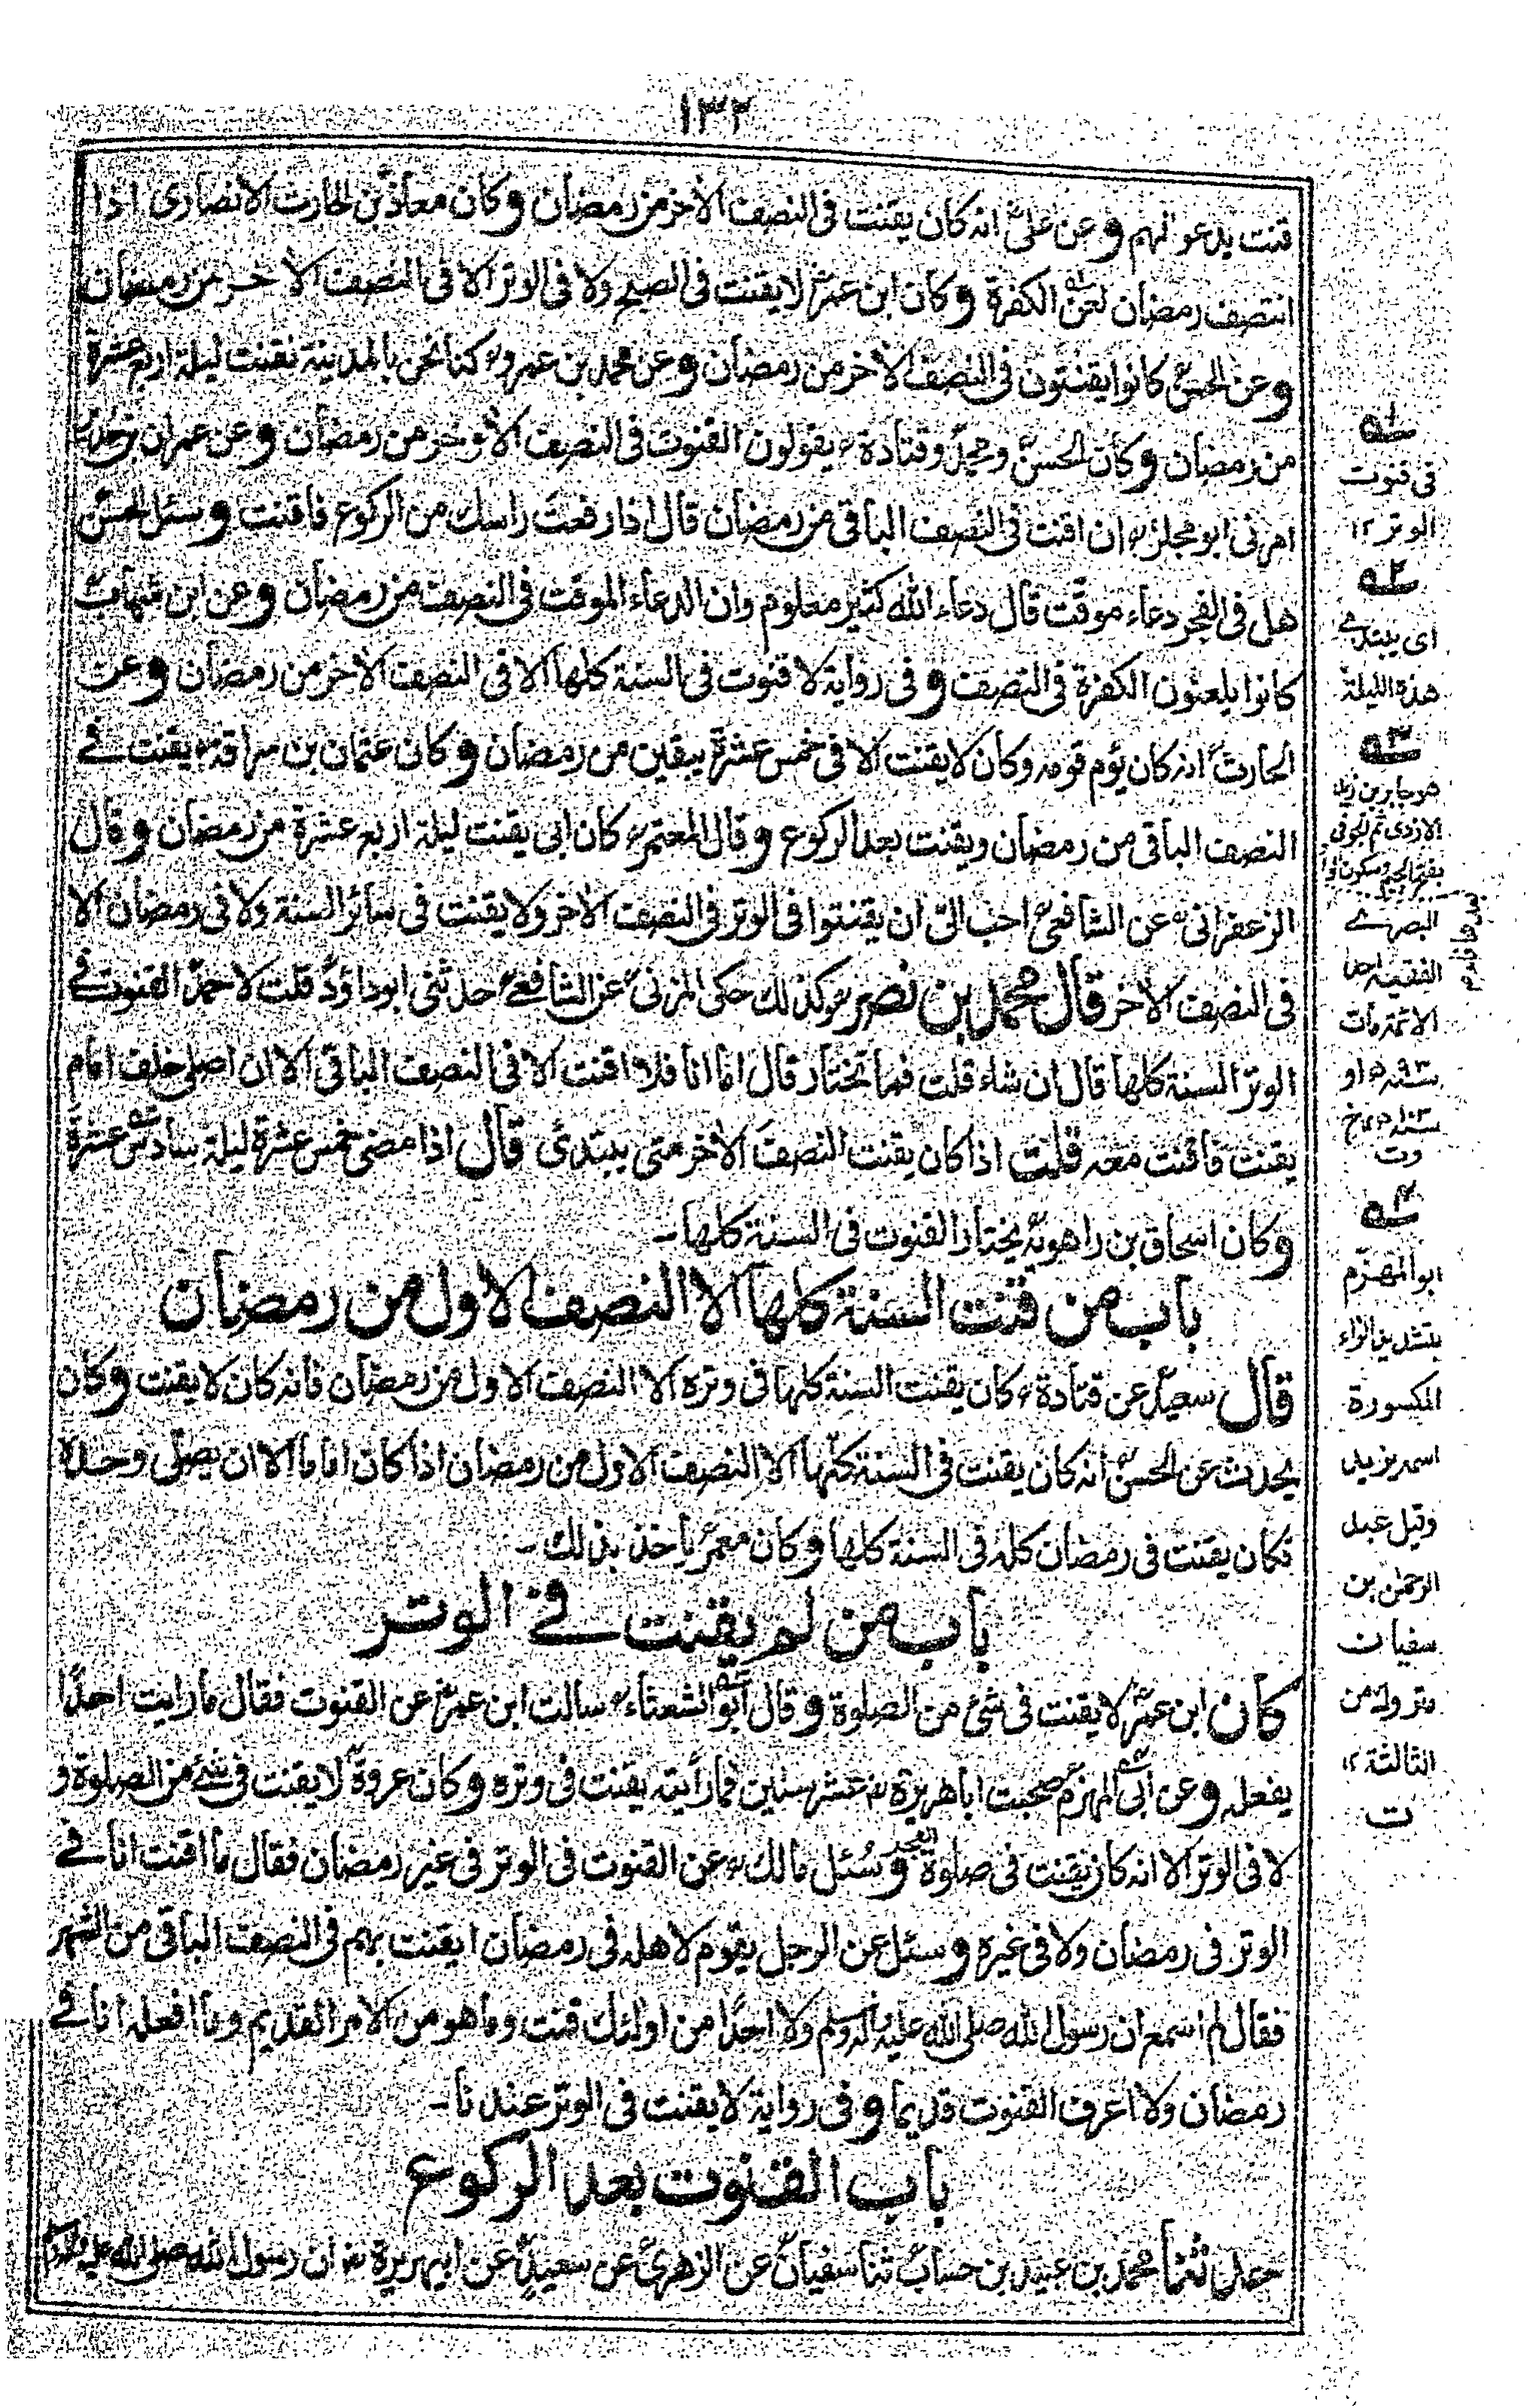 ١٣٢
قنت يدعو لهم وعن علي انه كان يقنت فى النصف الأخر من رمضان وكان معاذ بن الحارث الانصارى اذا
انتصف رمضان لعن الكفرة وكان ابن عمر لا يقنت فى الصبح ولا فى الوتر الا فى النصف الأخر من رمضان
وعن الحسن كانوا يقنتون فى النصف الأخر من رمضان وعن محمد بن عمرو كنا نحن بالمدينة نقنت ليلة اربع عشرة
من رمضان وكان الحسن ومحمد وقتادة يقولون القنوت فى النصف الأخر من رمضان وعن عمران بن حدير
امرنى ابو مجلز ان اقنت فى النصف الباقى من رمضان قال اذا رفعت راسك من الركوع فاقنت وسئل الحسن
هل فى الفجر دعاء موقت قال دعاء الله كثير معلوم وان الدعاء الموقت فى النصف من رمضان وعن ابن شهاب
كانوا يلعنون الكفرة فى النصف وفى رواية لا قنوت فى السنة كلها الا فى النصف الأخر من رمضان وعن
الحارث انه كان يؤم قومه وكان لا يقنت الا فى خمس عشرة يبقين من رمضان وكان عثمان بن سراقة يقنت فے
النصف الباقى من رمضان ويقنت بعد الركوع وقال المعتمر كان ابى يقنت ليلة اربع عشرة من رمضان وقال
الزعفرانى عن الشافعى احب الىّ ان يقنتوا فى الوتر فى النصف الأخر ولا يقنت فى سائر السنة ولا فى رمضان الا
فى النصف الأخر قال محمد بن نصر وكذلك حكى المزنى عن الشافعے حدثنى ابو داؤد قلت لاحمد القنوت فے
الوتر السنة كلها قال ان شاء قلت فما تختار قال اما انا فلا اقنت الا فى النصف الباقى الا ان اصلى خلف امام
يقنت فاقنت معه قلت اذا كان يقنت النصف الأخر متى يبتدئ قال اذا مضى خمس عشرة ليلة سادس عشرة
وكان اسحاق بن راهويه يختار القنوت فى السنة كلها۔
باب من قنت السنة كلها الا النصف الاول من رمضان
قال سعيد عن قتادة كان يقنت السنة كلها فى وتره الا النصف الاول من رمضان فانه كان لا يقنت وكان
يحدث عن الحسن انه كان يقنت فى السنة كلها الا النصف الاول من رمضان اذا كان اماما الا ان يصلى وحده
فكان يقنت فى رمضان كله فى السنة كلها وكان معمر ياخذ بذلك۔
باب من لم يقنت فے الوتر
كان ابن عمر لا يقنت فى شئ من الصلوة وقال ابو الشعثاء سالت ابن عمر عن القنوت فقال ما رايت احدًا
يفعله وعن ابى المهزم صحبت ابا هريرة عشر سنين فما رأيته يقنت فى وتره وكان عروة لا يقنت فى شئ من الصلوة و
لا فى الوتر الا انه كان يقنت فى صلوة الفجر وسئل مالك عن القنوت فى الوتر فى غير رمضان فقال ما اقنت انا فے
الوتر فى رمضان ولا فى غيره وسئل عن الرجل يقوم لاهله فى رمضان ايقنت بهم فى النصف الباقى من الشهر
فقال لم اسمع ان رسول الله صلى الله عليه واله وسلم ولا احدًا من اولئك قنت وما هو من الامر القديم وما افعله انا فے
رمضان ولا اعرف القنوت قديما وفى رواية لا يقنت فى الوتر عندنا۔
باب القنوت بعد الركوع
حدثنا محمد بن عبيد بن حساب ثنا سفيان عن الزهرى عن سعيد عن ابى هريرة ان رسول الله صلى الله عليه
١ه
فى قنوت
الوتر ١٢
٢ه
اى يبتدے
هذه الليلة
٣ه
هو جابر بن زيد
الازدى ثم الجوفى
البصرے
الفقيه احد
الائمة مات
سنة ٩٣ او
سنة ١٠٣
٤ه
ابو المهزّم
بتشديد الزاء
المكسورة
اسمه يزيد
وقيل عبد
الرحمن بن
سفيان
متروك من
الثالثة ١٢
ت